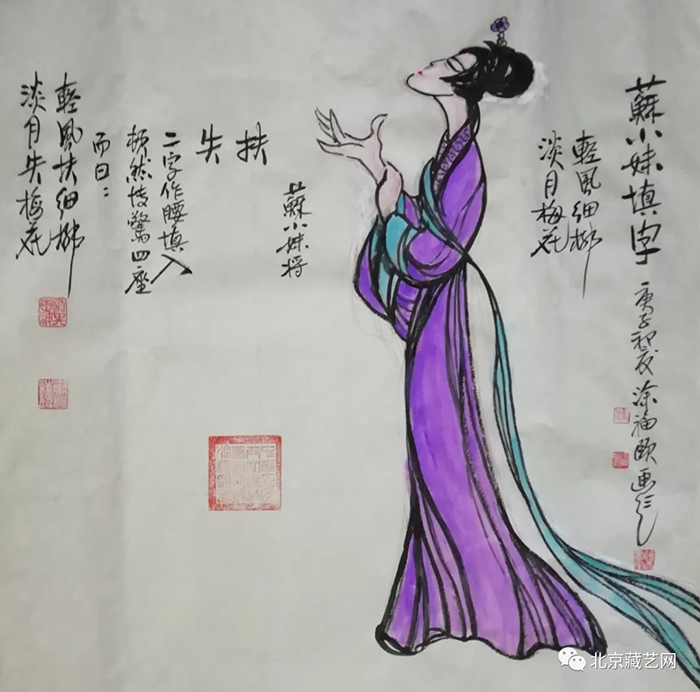 蘇小妹填字
庚子初夏涂福頤画
輕風細柳
淡月梅花
蘇小妹将
扶
失
二字作腰填入
頓然技驚四座
而曰：
輕風扶細柳
淡月失梅花
北京藏艺网